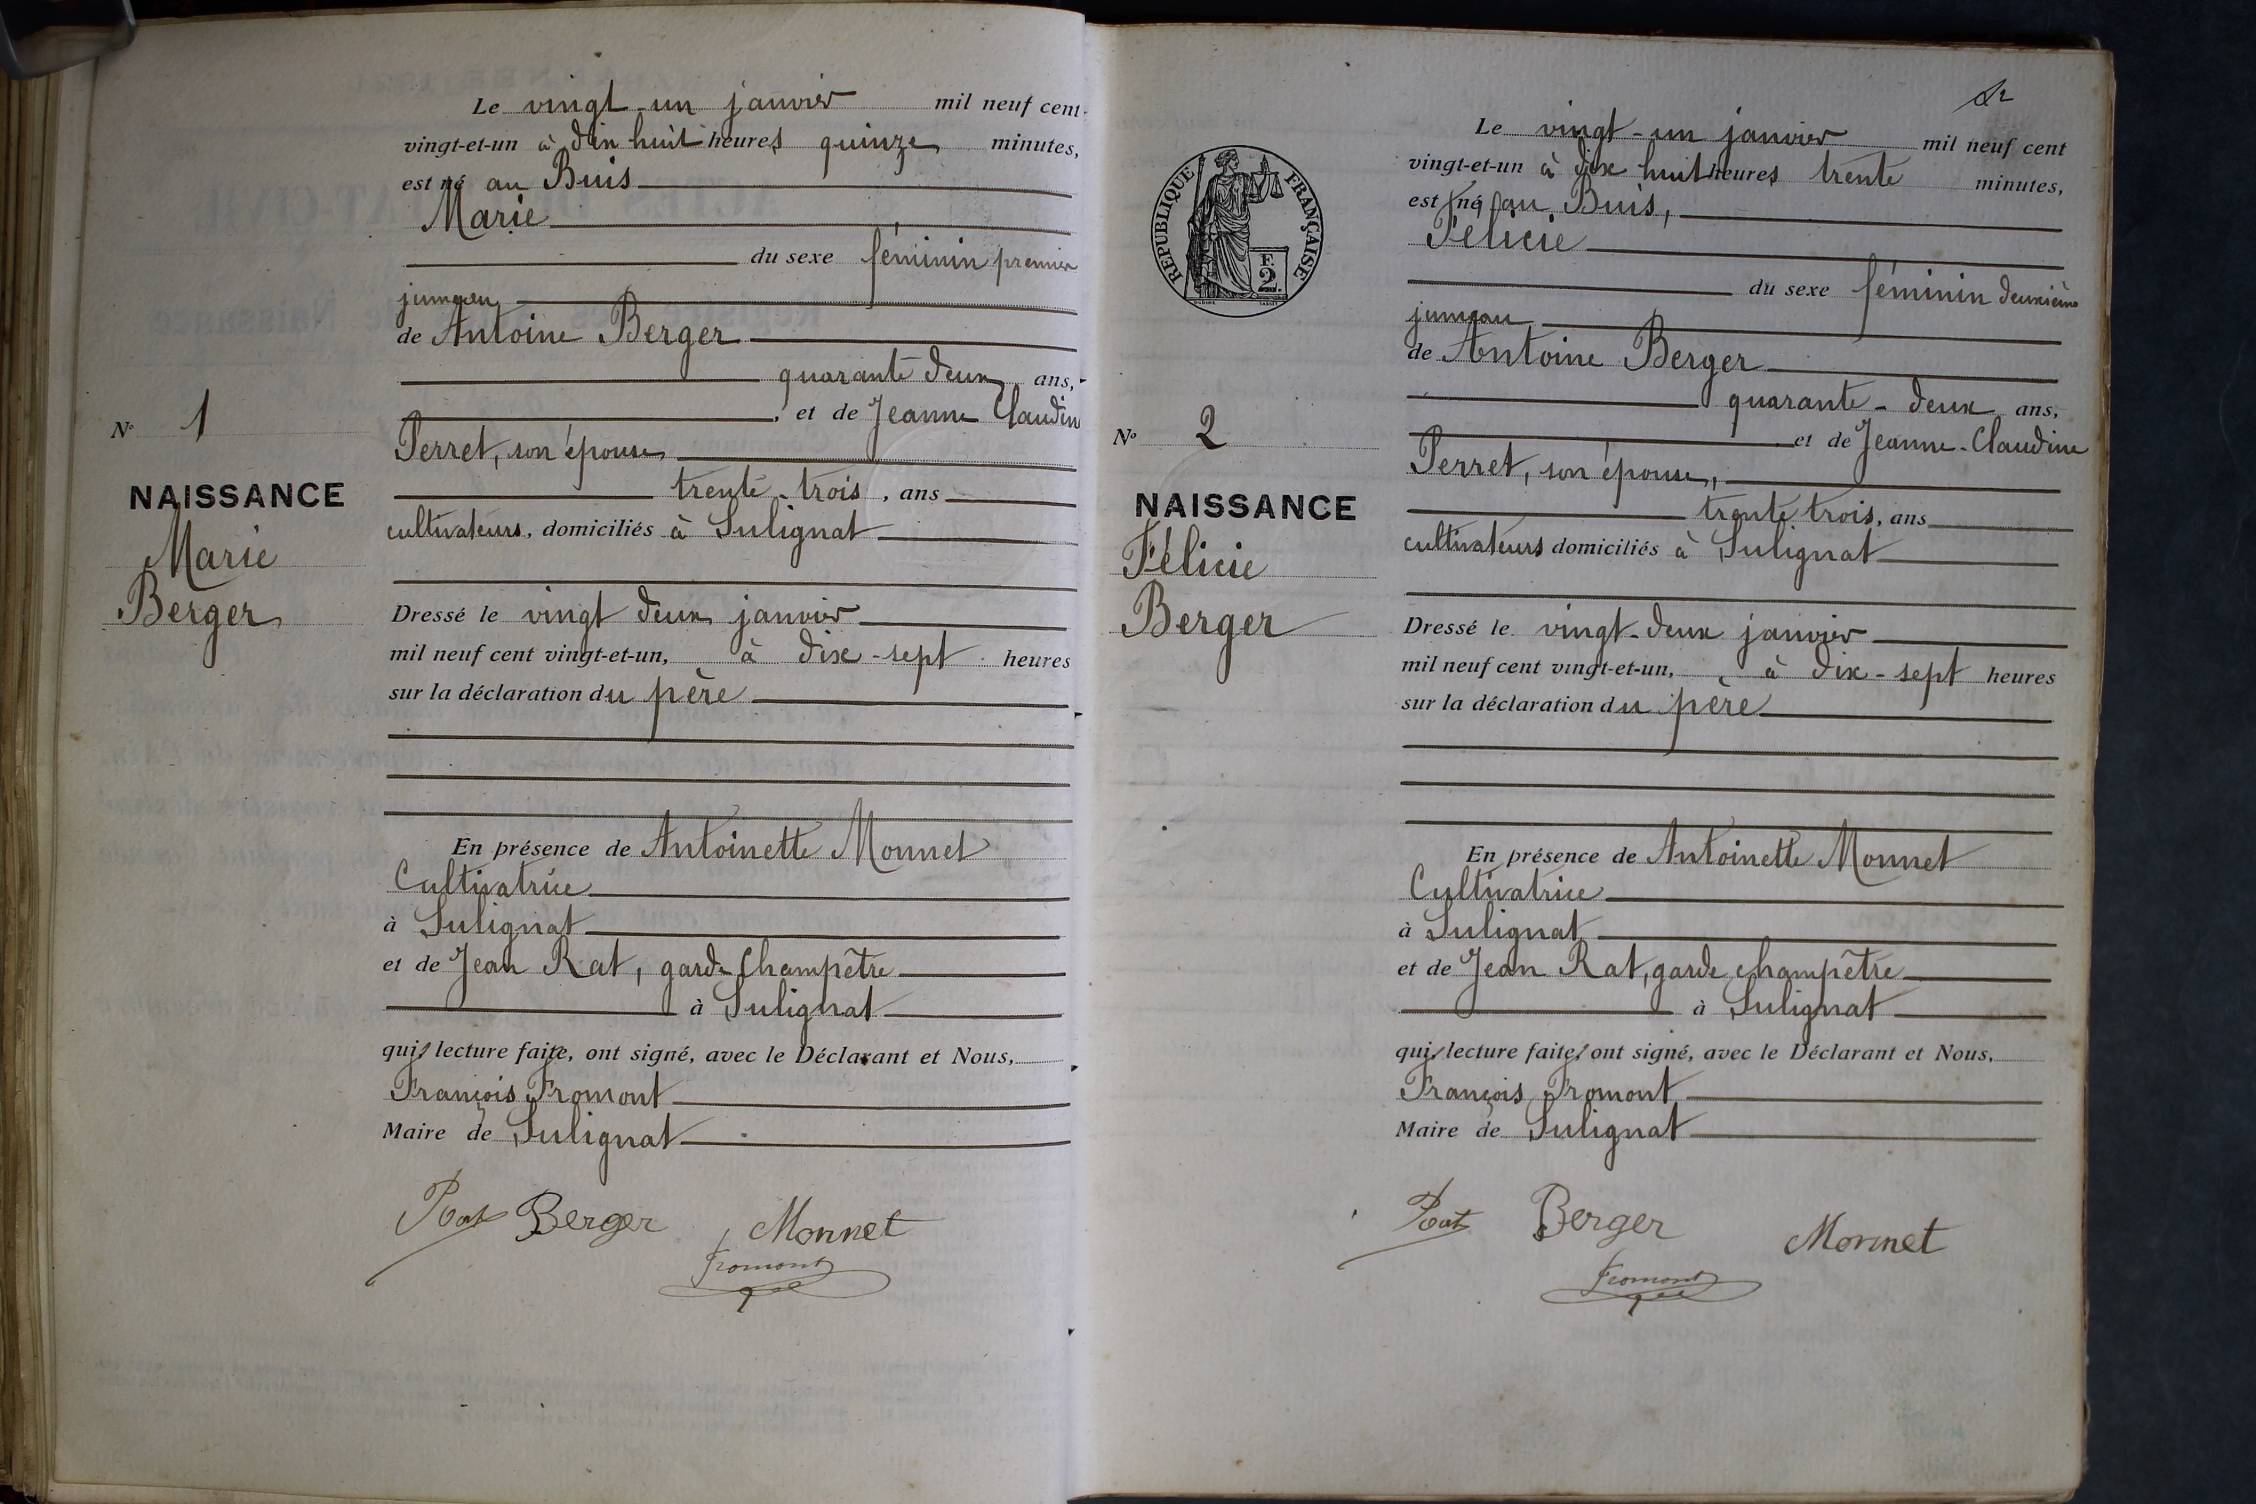 Le vingt-un janvier mil neuf cent
vingt-et-un à dix huit heures quinze minutes,
est né au Buis
Marie
du sexe féminin premier
jumeau
de Antoine Berger
quarante deux ans,
et de Jeanne Claudin
Perret, son épouse
trente-trois, ans
cultivateurs, domiciliés à Sulignat
Dressé le vingt deux janvier
mil neuf cent vingt-et-un, à dix-sept heures
sur la déclaration du père
En présence de Antoinette Monnet
Cultivatrice
à Sulignat
et de Jean Rat, garde champêtre
à Sulignat
qui, lecture faite, ont signé, avec le Déclarant et Nous,
François Fromont
Maire de Sulignat
Rat Berger Monnet
Fromont
N° 1
NAISSANCE
Marie
Berger
RÉPUBLIQUE FRANÇAISE
F.
2.
Le vingt-un janvier mil neuf cent
vingt-et-un à dix huit heures trente minutes,
est né au Buis,
Félicie
du sexe féminin deuxième
jumeau
de Antoine Berger
quarante-deux ans,
et de Jeanne-Claudine
Perret, son épouse,
trente trois, ans
cultivateurs domiciliés à Sulignat
Dressé le vingt-deux janvier
mil neuf cent vingt-et-un, à dix-sept heures
sur la déclaration du père
En présence de Antoinette Monnet
Cultivatrice
à Sulignat
et de Jean Rat, garde champêtre
à Sulignat
qui, lecture faite, ont signé, avec le Déclarant et Nous,
François Fromont
Maire de Sulignat
Rat Berger Monnet
Fromont
N° 2
NAISSANCE
Félicie
Berger